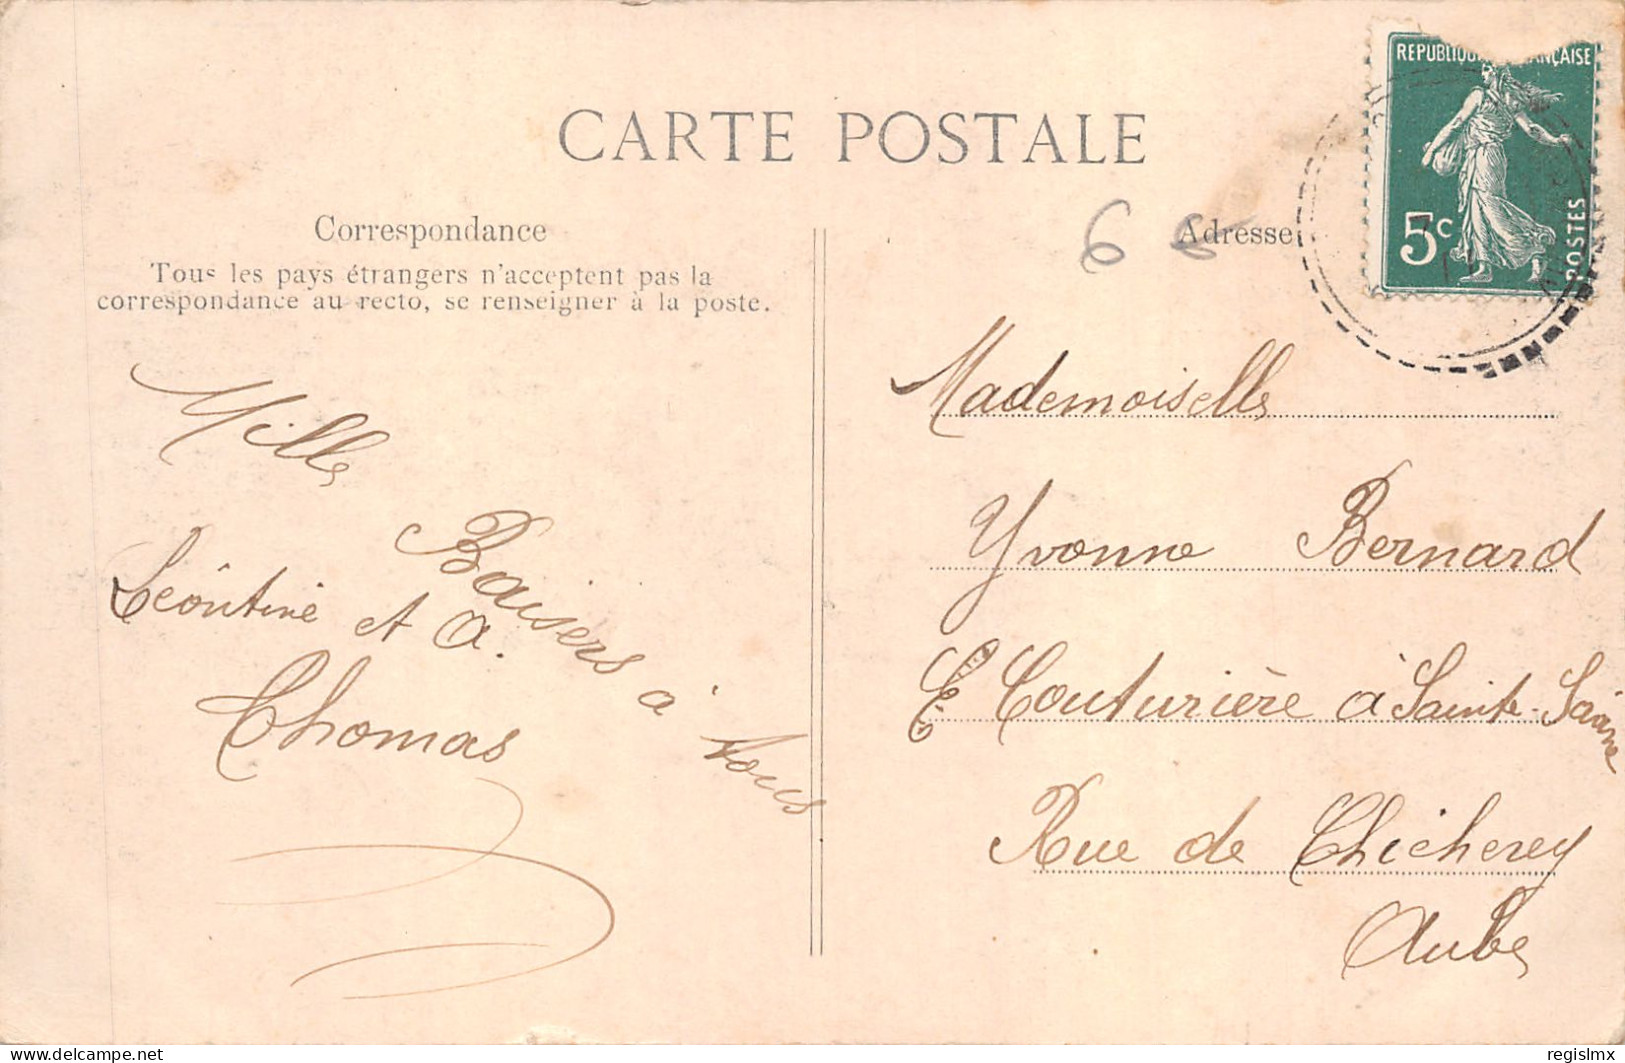 CARTE POSTALE
Correspondance
Tous les pays étrangers n'acceptent pas la
correspondance au recto, se renseigner à la poste.
Mille
Baisers à tous
Léontine et A.
Thomas
6 6
Adresse
REPUBLIQUE FRANÇAISE
5c
POSTES
Mademoiselle
Yvonne Bernard
Couturière à Sainte-Savine
Rue de Chicherey
Aube
delcampe.net
regislmx